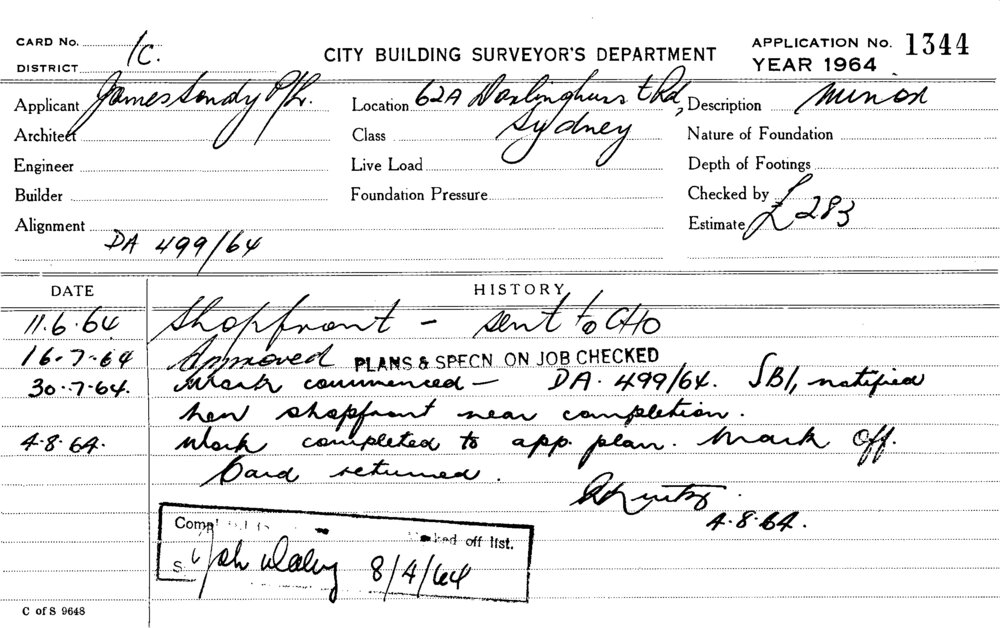 CARD No. 1C.
DISTRICT
CITY BUILDING SURVEYOR'S DEPARTMENT
APPLICATION No. 1344
YEAR 1964
Applicant James Sandy P/L.
Location 62A Darlinghurst Rd,
Sydney
Description Minor
Architect
Class
Nature of Foundation
Engineer
Live Load
Depth of Footings
Builder
Foundation Pressure
Checked by
Alignment
Estimate £283
DA 499/64
DATE
HISTORY
11.6.64 Shopfront - sent to CHO
16-7-64 Approved PLANS & SPECN ON JOB CHECKED
30-7-64. Work commenced - DA. 499/64. SBI, notified
new shopfront near completion.
4-8-64. Work completed to app. plan. Mark off.
Card returned.
4.8.64.
off list.
S.
8/4/64
C of S 9648